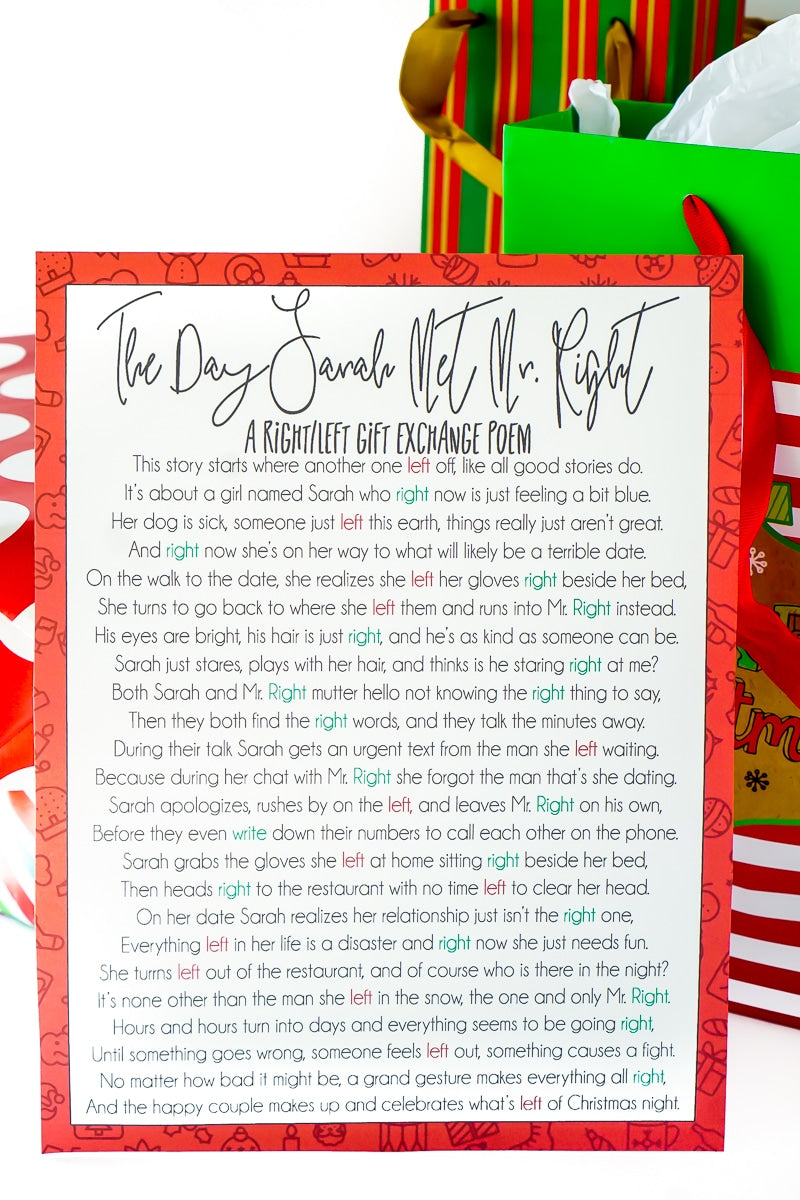 The Day Sarah Met Mr. Right
A RIGHT/LEFT GIFT EXCHANGE POEM
This story starts where another one left off, like all good stories do.
It's about a girl named Sarah who right now is just feeling a bit blue.
Her dog is sick, someone just left this earth, things really just aren't great.
And right now she's on her way to what will likely be a terrible date.
On the walk to the date, she realizes she left her gloves right beside her bed,
She turns to go back to where she left them and runs into Mr. Right instead.
His eyes are bright, his hair is just right, and he's as kind as someone can be.
Sarah just stares, plays with her hair, and thinks is he staring right at me?
Both Sarah and Mr. Right mutter hello not knowing the right thing to say,
Then they both find the right words, and they talk the minutes away.
During their talk Sarah gets an urgent text from the man she left waiting.
Because during her chat with Mr. Right she forgot the man that's she dating.
Sarah apologizes, rushes by on the left, and leaves Mr. Right on his own,
Before they even write down their numbers to call each other on the phone.
Sarah grabs the gloves she left at home sitting right beside her bed,
Then heads right to the restaurant with no time left to clear her head.
On her date Sarah realizes her relationship just isn't the right one,
Everything left in her life is a disaster and right now she just needs fun.
She turns left out of the restaurant, and of course who is there in the night?
It's none other than the man she left in the snow, the one and only Mr. Right.
Hours and hours turn into days and everything seems to be going right,
Until something goes wrong, someone feels left out, something causes a fight.
No matter how bad it might be, a grand gesture makes everything all right,
And the happy couple makes up and celebrates what's left of Christmas night.